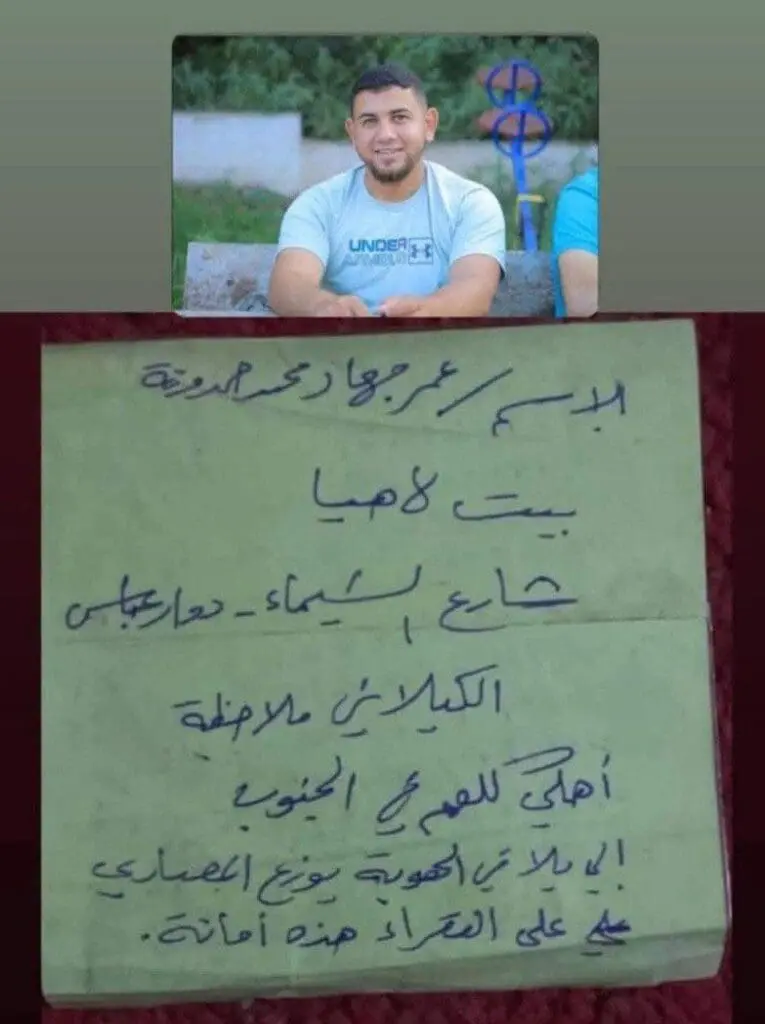 UNDER
ARMOUR
الاسم / عمر جهاد محمد حمدونة
بيت لاهيا
شارع الشيماء - دوار عباس
الكيلاني ملاحظة
أهلي كلهم في الجنوب
إلي يلاقي الهوية يوزع المصاري
على الفقراء هذه أمانة.